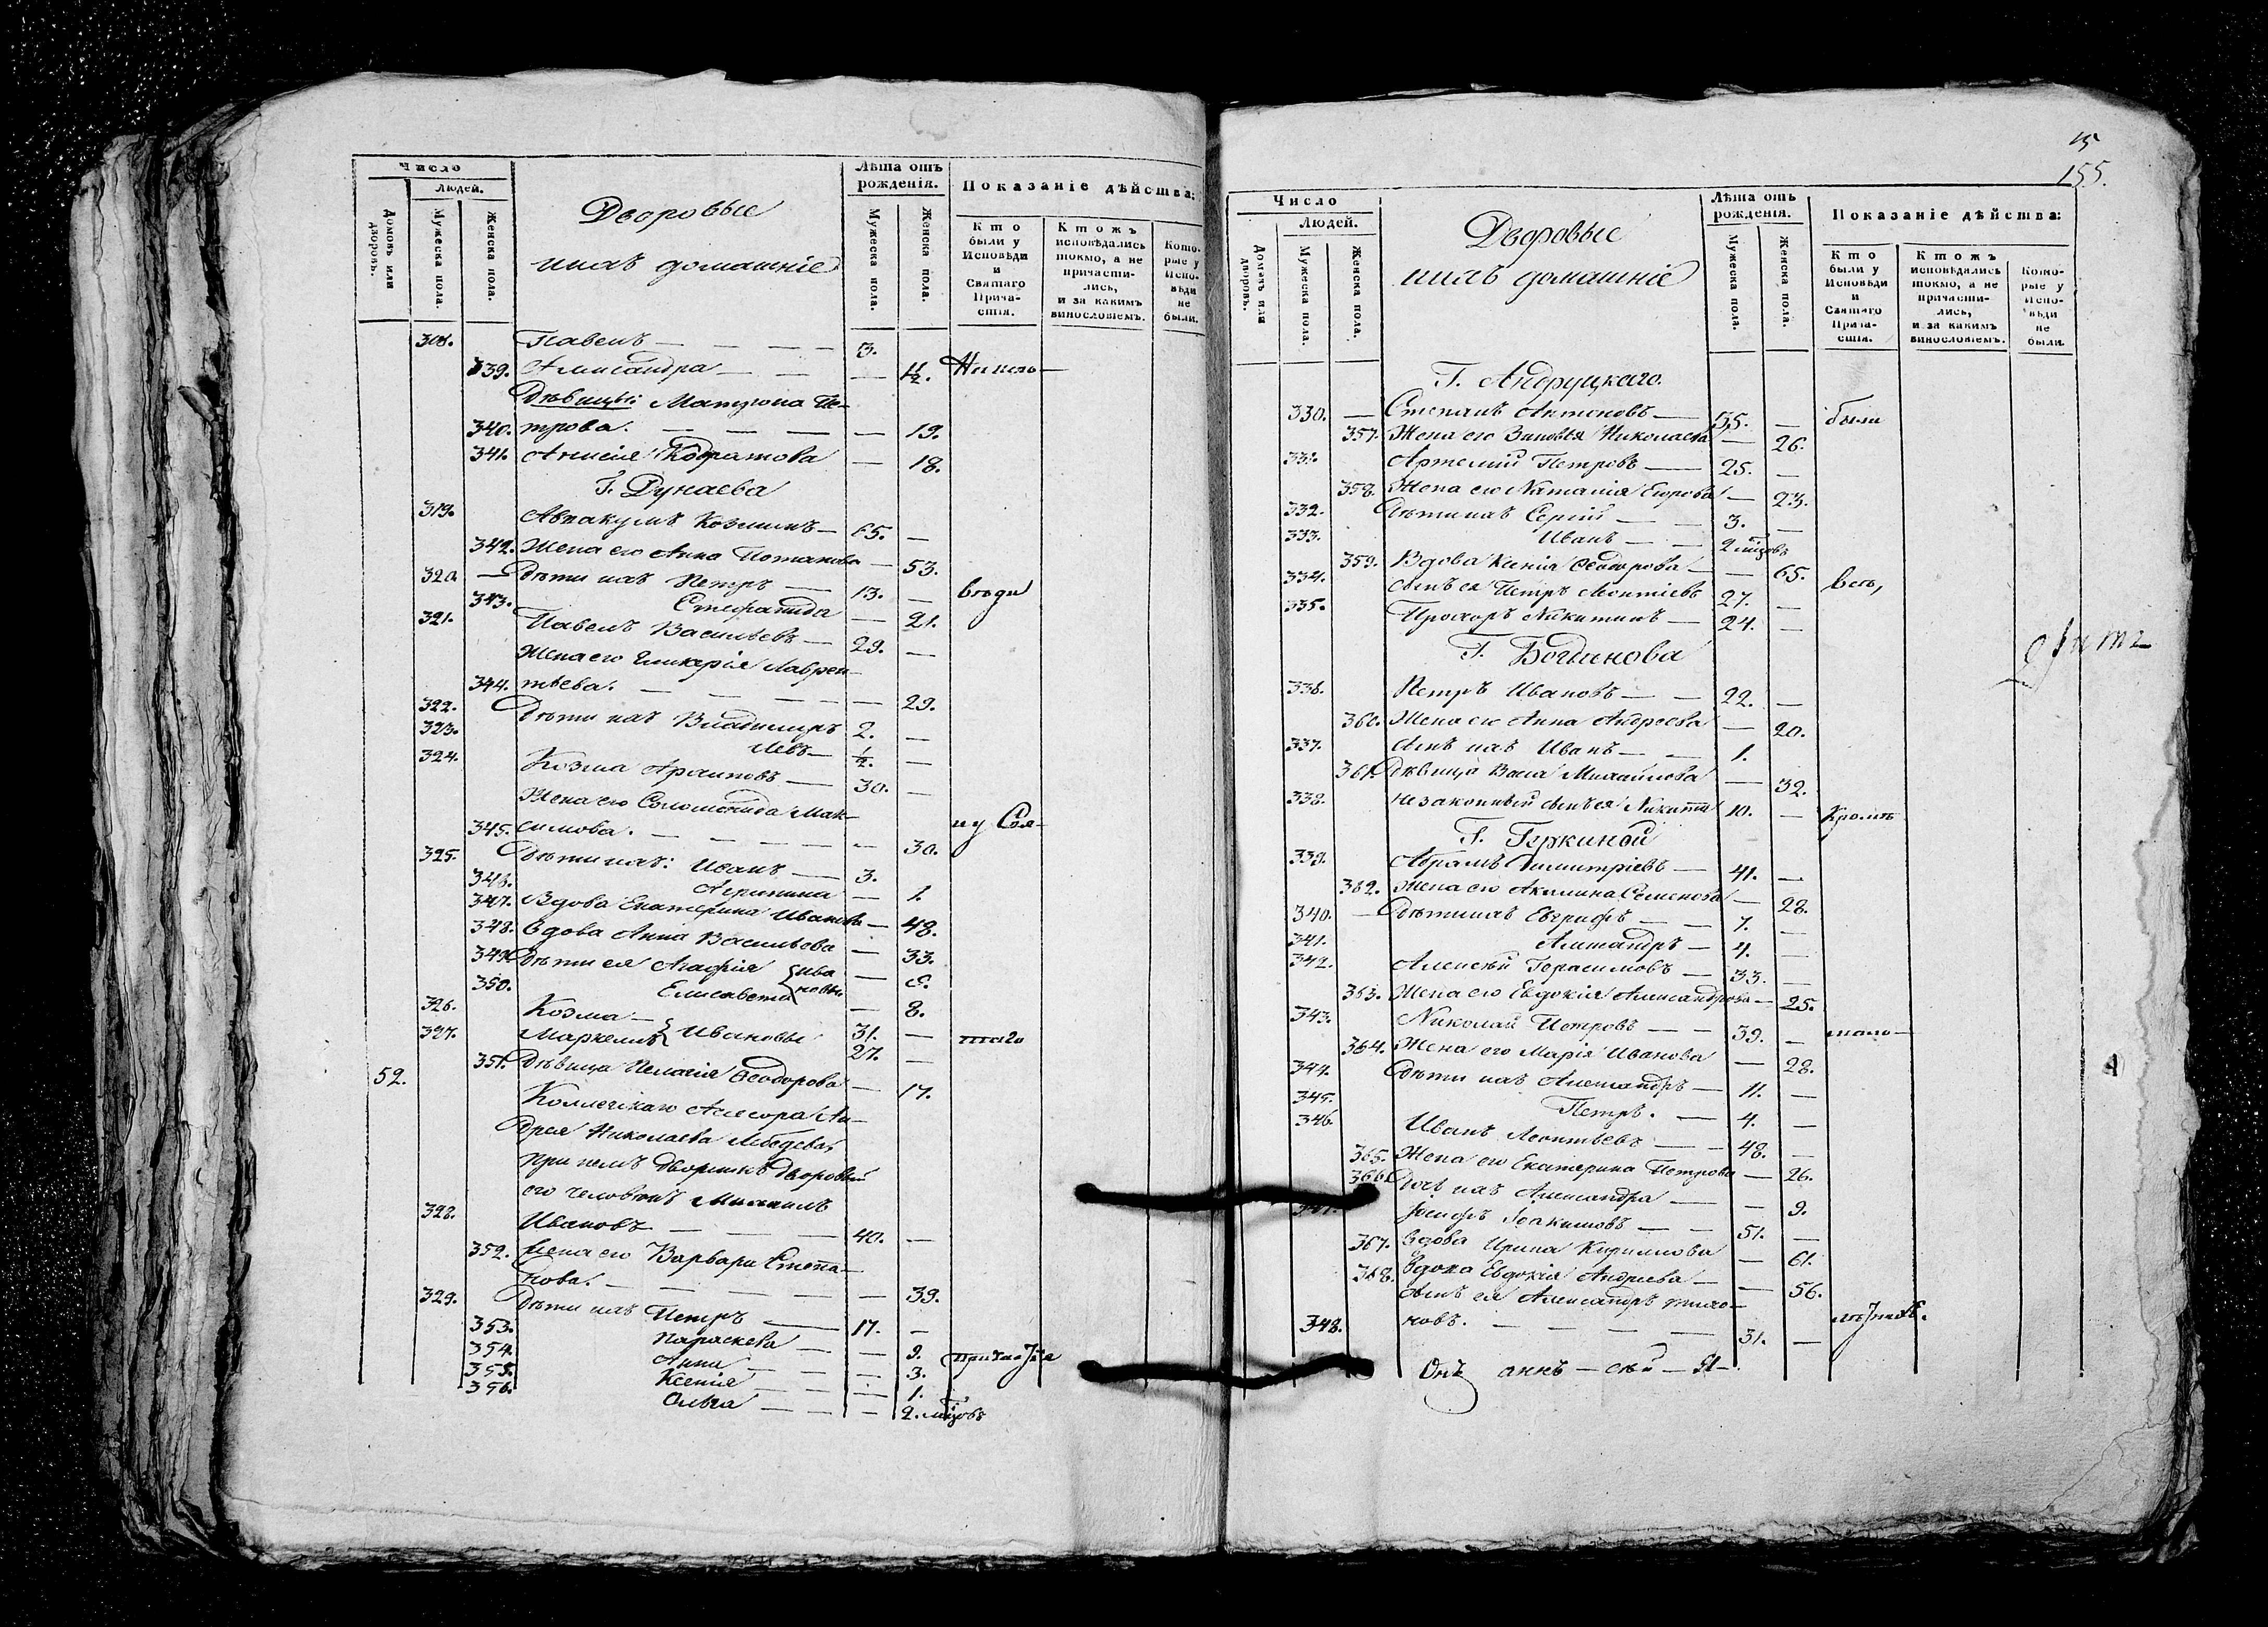 Число
Людей.
Домовъ или дворовъ.
Мужеска пола.
Женска пола.
Дворовые
ихъ домашніе
Лѣта отъ рожденія.
Мужеска пола.
Женска пола.
Показаніе дѣйства:
Кто были у Исповѣди и Святаго Прича-стія.
Ктожъ исповѣдались токмо, а не причасти-лись, и за какимъ винословіемъ.
Кото-рые у Испо-вѣди не были.
Павелъ — — — — 13.
339. Александра — — — 1½.
Дѣвицы: Матрона Пе-
340. трова. — — — — 19.
341. — 18.
Г. Дунаева
319. Аввакумъ Козминъ — 65. —
342. Жена его Анна Потапова — 53.
320. — Дѣти ихъ Петръ — 13. —
343. Стефанида — 21.
321. Павелъ Васильевъ — 29. —
Жена его Гликерія Лаврен-
344. тьева. — — — — 29.
322. Дѣти ихъ Владимиръ 2. —
323. Левъ — ½. —
324. Козма Архиповъ — 30. —
Жена его Соломонида Мак-
345. симова. — — — — 30.
325. Дѣти ихъ: Иванъ — 3.
346. Агрипина — 1.
347. Вдова Екатерина Иванова — 48.
348. Вдова Анна Васильева — 33.
349. Дѣти ея Агафія {Ива
350. Елисавета {новы — 8.
326. Козма — } 31. —
327. Маркелъ } Ивановы 27. —
351. Дѣвица Пелагія Ѳеодорова — 17.
52. Коллежскаго Ассесора Ан-
дрея Николаева Лебедева,
при немъ дворникъ дворовый
его человѣкъ Михаилъ
328. Ивановъ — — 40. —
352. Жена его Варвара Степа-
нова. — — — — 39.
329. Дѣти ихъ Петръ — 17. —
353. Параскева — — 9.
354. Анна — — 3.
355. Ксенія — — 1.
356. Ольга — — 2. мцовъ
15
155.
Число
Людей.
Домовъ или дворовъ.
Мужеска пола.
Женска пола.
Дворовые
ихъ домашніе
Лѣта отъ рожденія.
Мужеска пола.
Женска пола.
Показаніе дѣйства:
Кто были у Исповѣди и Святаго Прича-стія.
Ктожъ исповѣдались токмо, а не причасти-лись, и за какимъ винословіемъ.
Кото-рые у Испо-вѣди не были.
Г. Андруцкаго.
330. — Степанъ Антоновъ — 35. — были
357. Жена его Зиновья Николаева — 26.
331. Артемій Петровъ — 25. —
358. Жена его Наталія Егорова — 23.
332. Дѣти ихъ Сергій — 3. —
333. Иванъ — 2 мцовъ
359. Вдова Ксенія Ѳеодорова — 65. всѣ,
334. сынъ ея Петръ Леонтіевъ 27. —
335. Прохоръ Никитинъ — 24. —
Г. Богданова
336. Петръ Ивановъ — — 22. —
360. Жена его Анна Андреева — 20.
337. сынъ ихъ Иванъ — — 1.
361. Дѣвица Васса Михайлова — 32.
338. незаконный сынъ ея Никита 10. — кромѣ
339. Абрамъ Димитріевъ — 41. —
362. Жена его Акилина Семенова — 28.
340. — Дѣти ихъ Евграфъ — 7. —
341. Александръ — 4. —
342. Алексѣй Герасимовъ — 33. —
363. Жена его Евдокія Александрова — 25.
343. Николай Петровъ — — 39. — мало-
364. Жена его Марія Иванова — 28.
344. Дѣти ихъ Александръ — 11. —
345. Петръ. — 4. —
346. Иванъ Леонтьевъ — — 48. —
365. Жена его Екатерина Петрова — 26.
366. Дочь ихъ Александра — — 9.
Іосифъ Іоакимовъ — — 51. —
367. Вдова Ирина Кирилова — 61.
368. Вдова Евдокія Андреева — 56.
сынъ ея Александръ Тихо-
348. новъ. — — — — 31. —